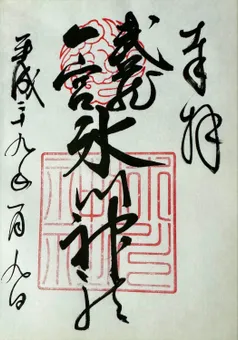 奉拝
武蔵
一宮氷川神社
平成二十九年一月九日